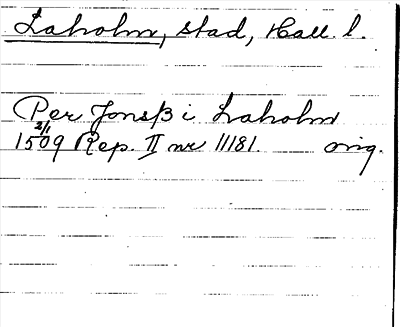 Laholm, stad, Hall. l.
Per Jonsß i Laholm
1509 2/1 Rep. II nr 11181. orig.